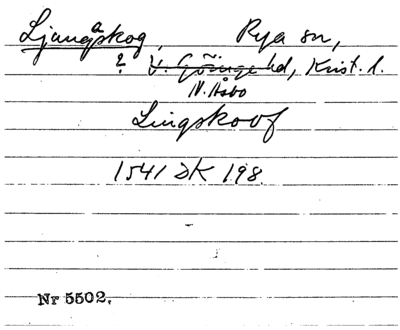 Ljungaskog, Rya sn,
? V. Göinge hd, Krist. l.
N. Åsbo
Lingskoof
1541 DK 198.
Nr 5502.